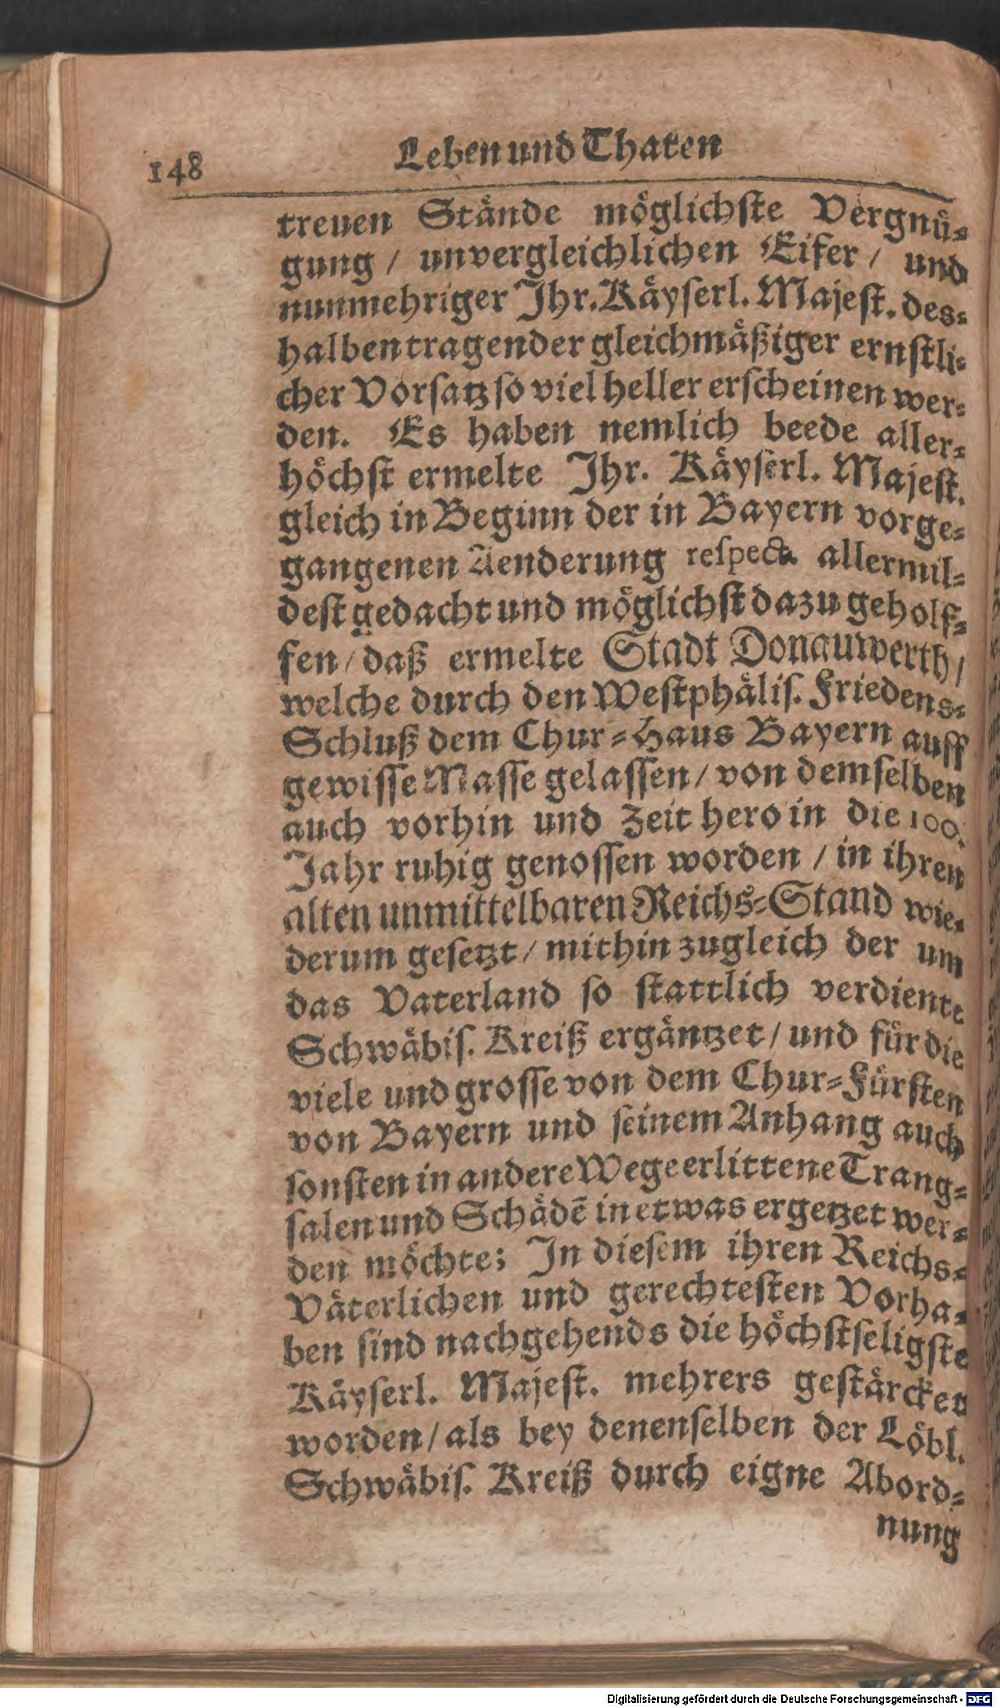 148 Leben und Thaten
treuen Stände möglichste Vergnü-
gung / unvergleichlichen Eifer / und
nunmehriger Ihr. Käyserl. Majest. des-
halben tragender gleichmäßiger ernstli-
cher Vorsatz so viel heller erscheinen wer-
den. Es haben nemlich beede aller-
höchst ermelte Ihr. Käyserl. Majest.
gleich in Beginn der in Bayern vorge-
gangenen Aenderung respect. allermil-
dest gedacht und möglichst dazu geholf-
fen / daß ermelte Stadt Donauwerth /
welche durch den Westphälis. Friedens-
Schluß dem Chur-Haus Bayern auff
gewisse Masse gelassen / von demselben
auch vorhin und zeit hero in die 100.
Jahr ruhig genossen worden / in ihren
alten unmittelbaren Reichs-Stand wie-
derum gesetzt / mithin zugleich der um
das Vaterland so stattlich verdiente
Schwäbis. Kreiß ergäntzet / und für die
viele und grosse von dem Chur-Fürsten
von Bayern und seinem Anhang auch
sonsten in andere Wege erlittene Trang-
salen und Schädē in etwas ergetzet wer-
den möchte; In diesem ihren Reichs-
Väterlichen und gerechtesten Vorha-
ben sind nachgehends die höchstseligste
Käyserl. Majest. mehrers gestärcket
worden / als bey denenselben der Löbl.
Schwäbis. Kreiß durch eigne Abord-
nung
Digitalisierung gefördert durch die Deutsche Forschungsgemeinschaft - DFG